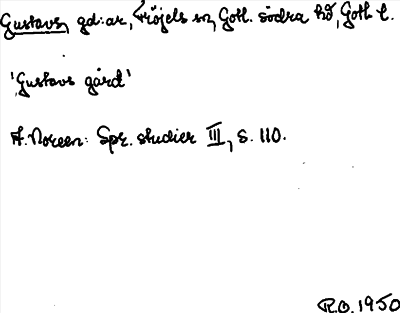 Gustavs, gd:ar, Fröjels sn, Gotl. södra hd, Gotl. l.
'Gustavs gård'
A. Noreen: Spr. studier III, s. 110.
R.O. 1950